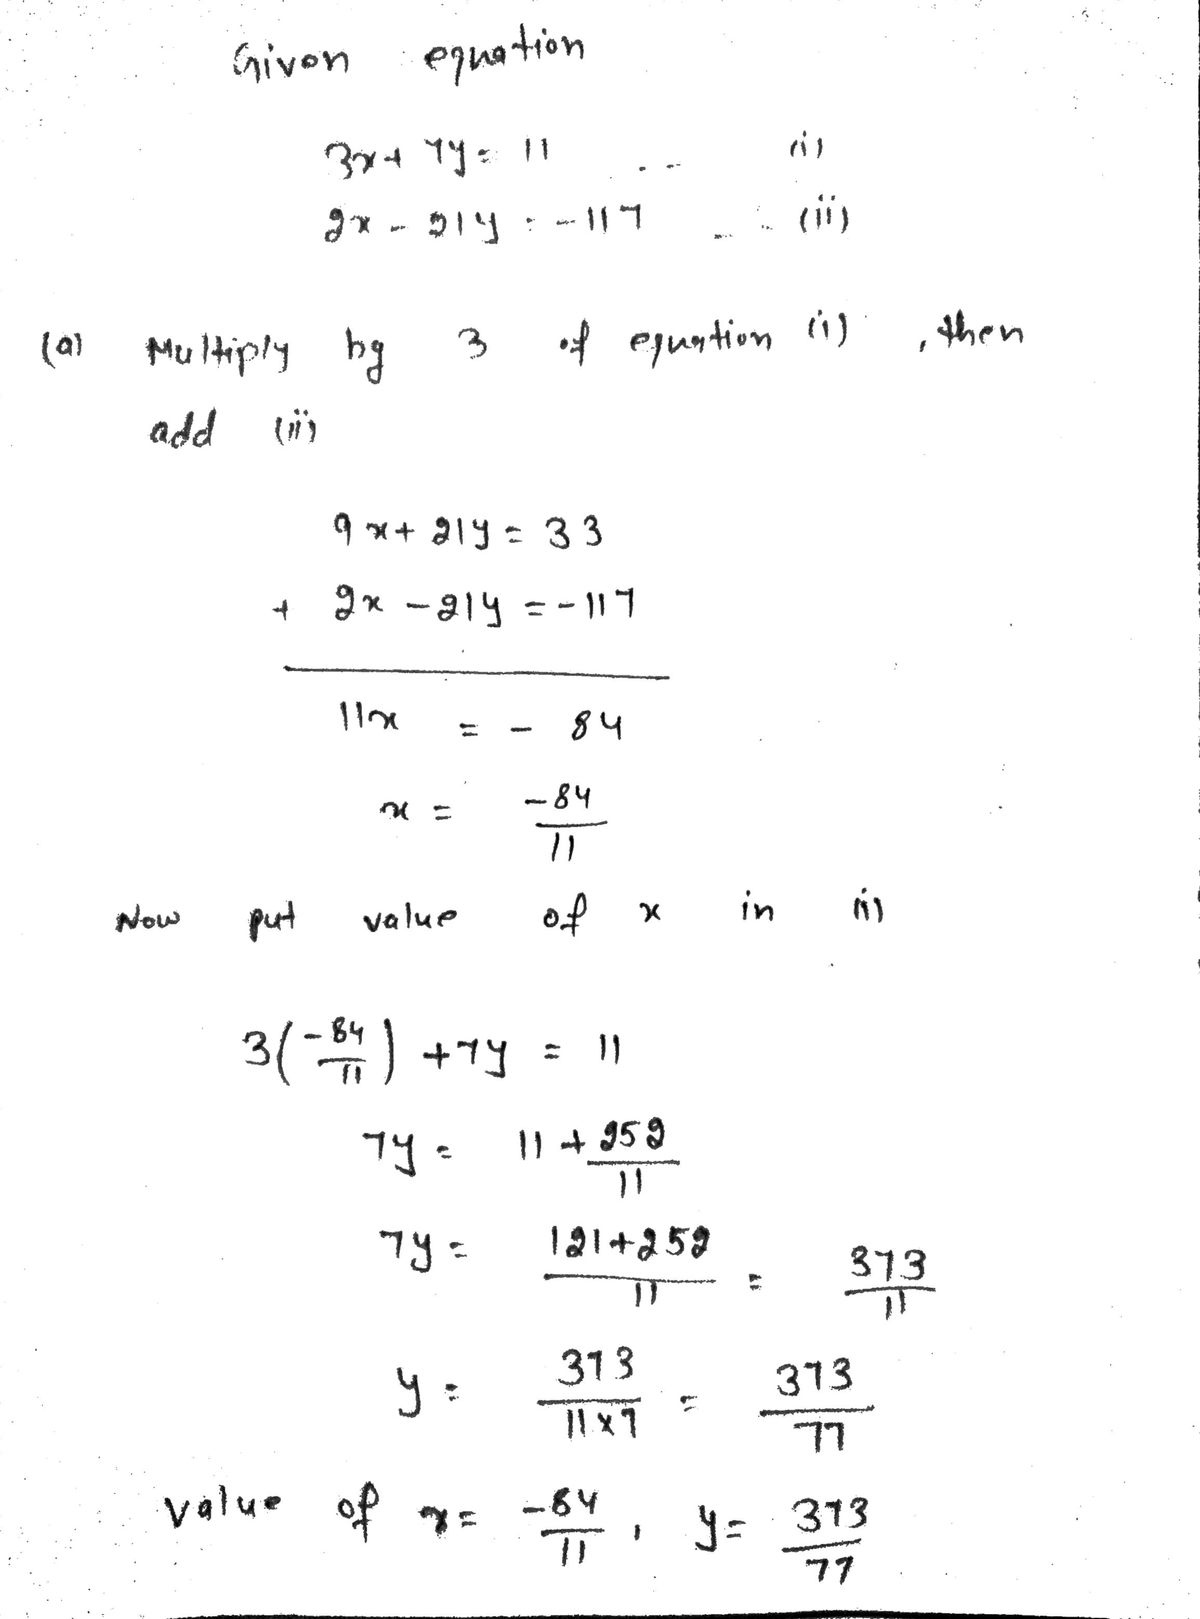 Given equation
3x + 7y = 11 ... (i)
2x - 21y = -117 ... (ii)
(a) Multiply by 3 of equation (i), then
add (ii)
9x + 21y = 33
+ 2x - 21y = -117
11x = - 84
x = -84/11
Now put value of x in (i)
3(-84/11) + 7y = 11
7y = 11 + 252/11
7y = 121+252/11 = 373/11
y = 373/11x7 = 373/77
value of x = -84/11, y = 373/77